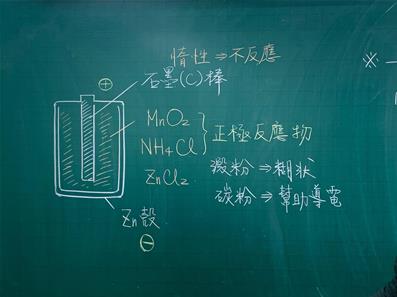 惰性⇒不反應
⊕
石墨(C)棒
※
MnO₂
NH₄Cl } 正極反應物
ZnCl₂
澱粉⇒糊狀
碳粉⇒幫助導電
Zn殼
⊖